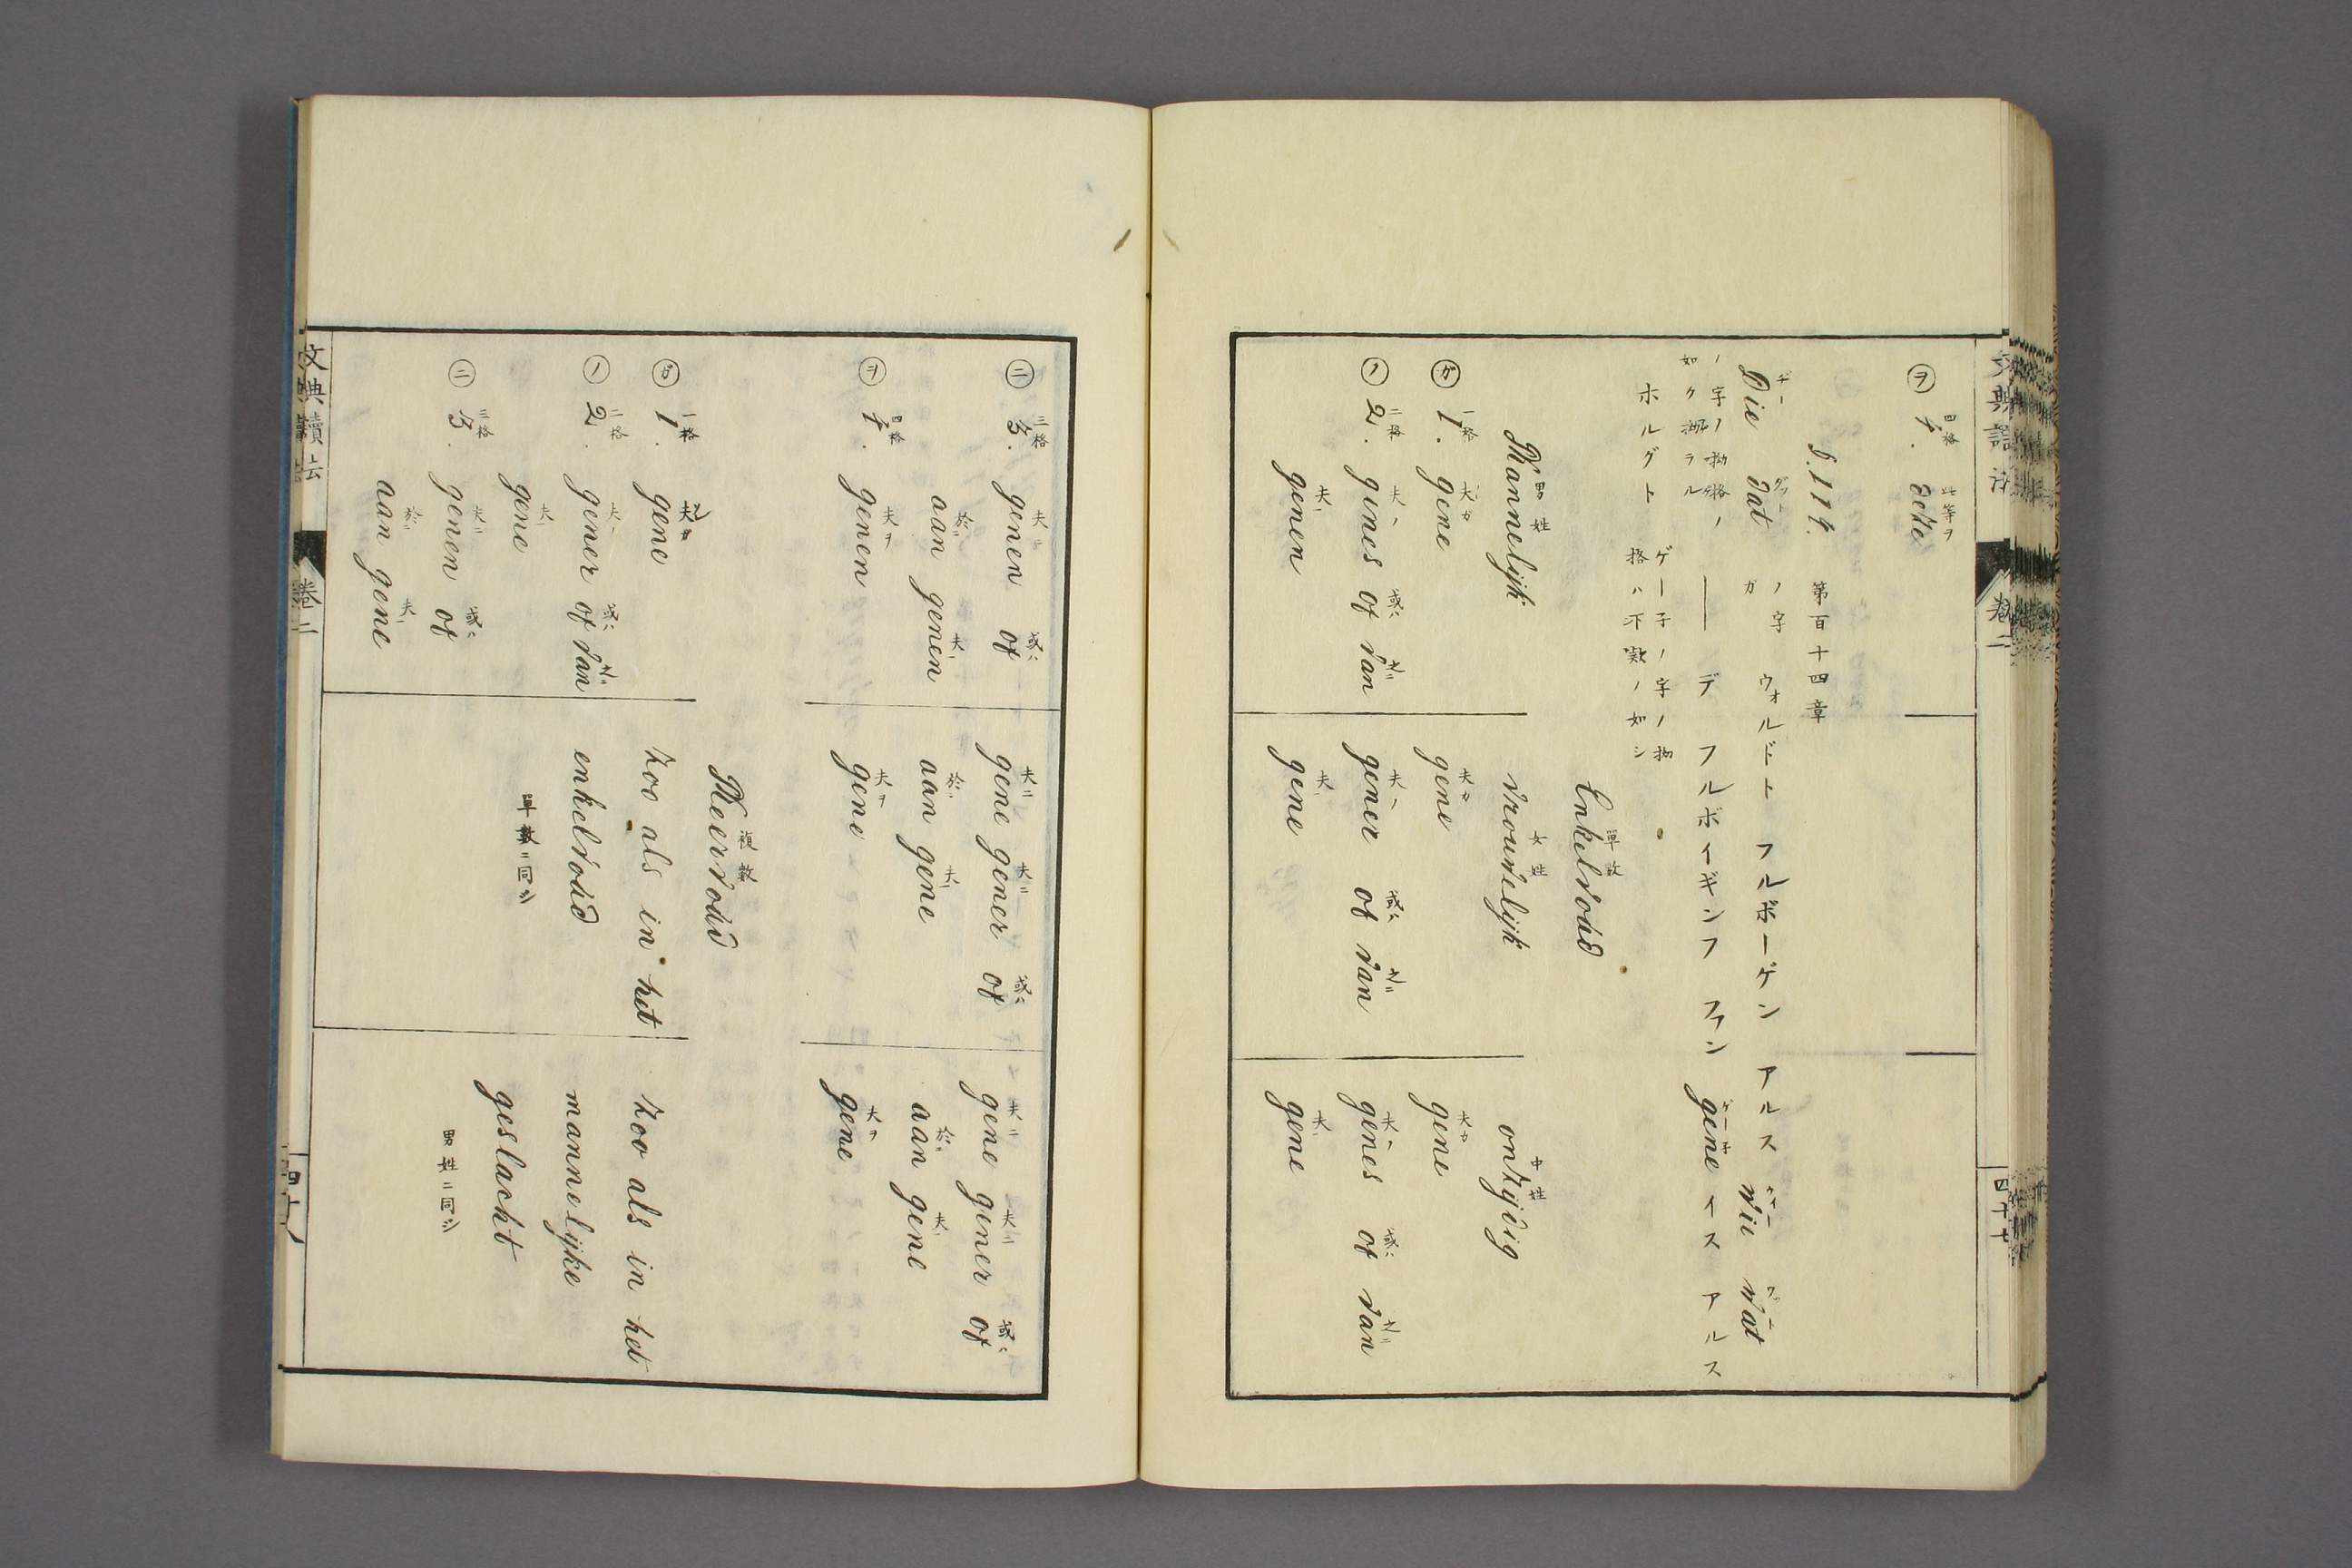 ヲ 四格 4. 此等ヲ
§.114. 第百十四章
Die dat ノ字ガ ウォルドト フルボーゲン アルス wie wat
ヂー ダット ウイー ワット
ノ字ノ拗格ノ如ク拗ラル ― デ フルボイギンフ ファン gene イス アルス
ゲー子
ホルグト ゲー子ノ字ノ拗格ハ不歟ノ如シ
Enkelvoud 單数
Mannelijk 男姓 vrouwelijk 女姓 onzijdig 中姓
ガ 一格 1. gene 夫ガ gene 夫ガ gene 夫ガ
ノ 二格 2. genes of van 夫ノ 或ハ 之ニ gener of van 夫ノ 或ハ 之ニ genes of van 夫ノ 或ハ 之ニ
genen gene gene
文典讀法 卷二 四十七
ニ 三格 3. genen of 夫ニ 或ハ gene gener of 夫ニ 夫ニ 或ハ gene gener of 夫ニ 夫ニ 或ハ
aan genen 於ニ aan gene 於ニ aan gene 於ニ
ヲ 四格 4. genen 夫ヲ gene 夫ヲ gene 夫ヲ
Meervoud 複数
ガ 一格 1. gene 夫ガ zoo als in het zoo als in het
ノ 二格 2. gener of van 夫ノ 或ハ 之ニ enkelvoud mannelijke
gene 單数ニ同シ geslacht
ニ 三格 3. genen of 夫ニ 或ハ 男姓ニ同シ
aan gene 於ニ
文典讀法 卷二